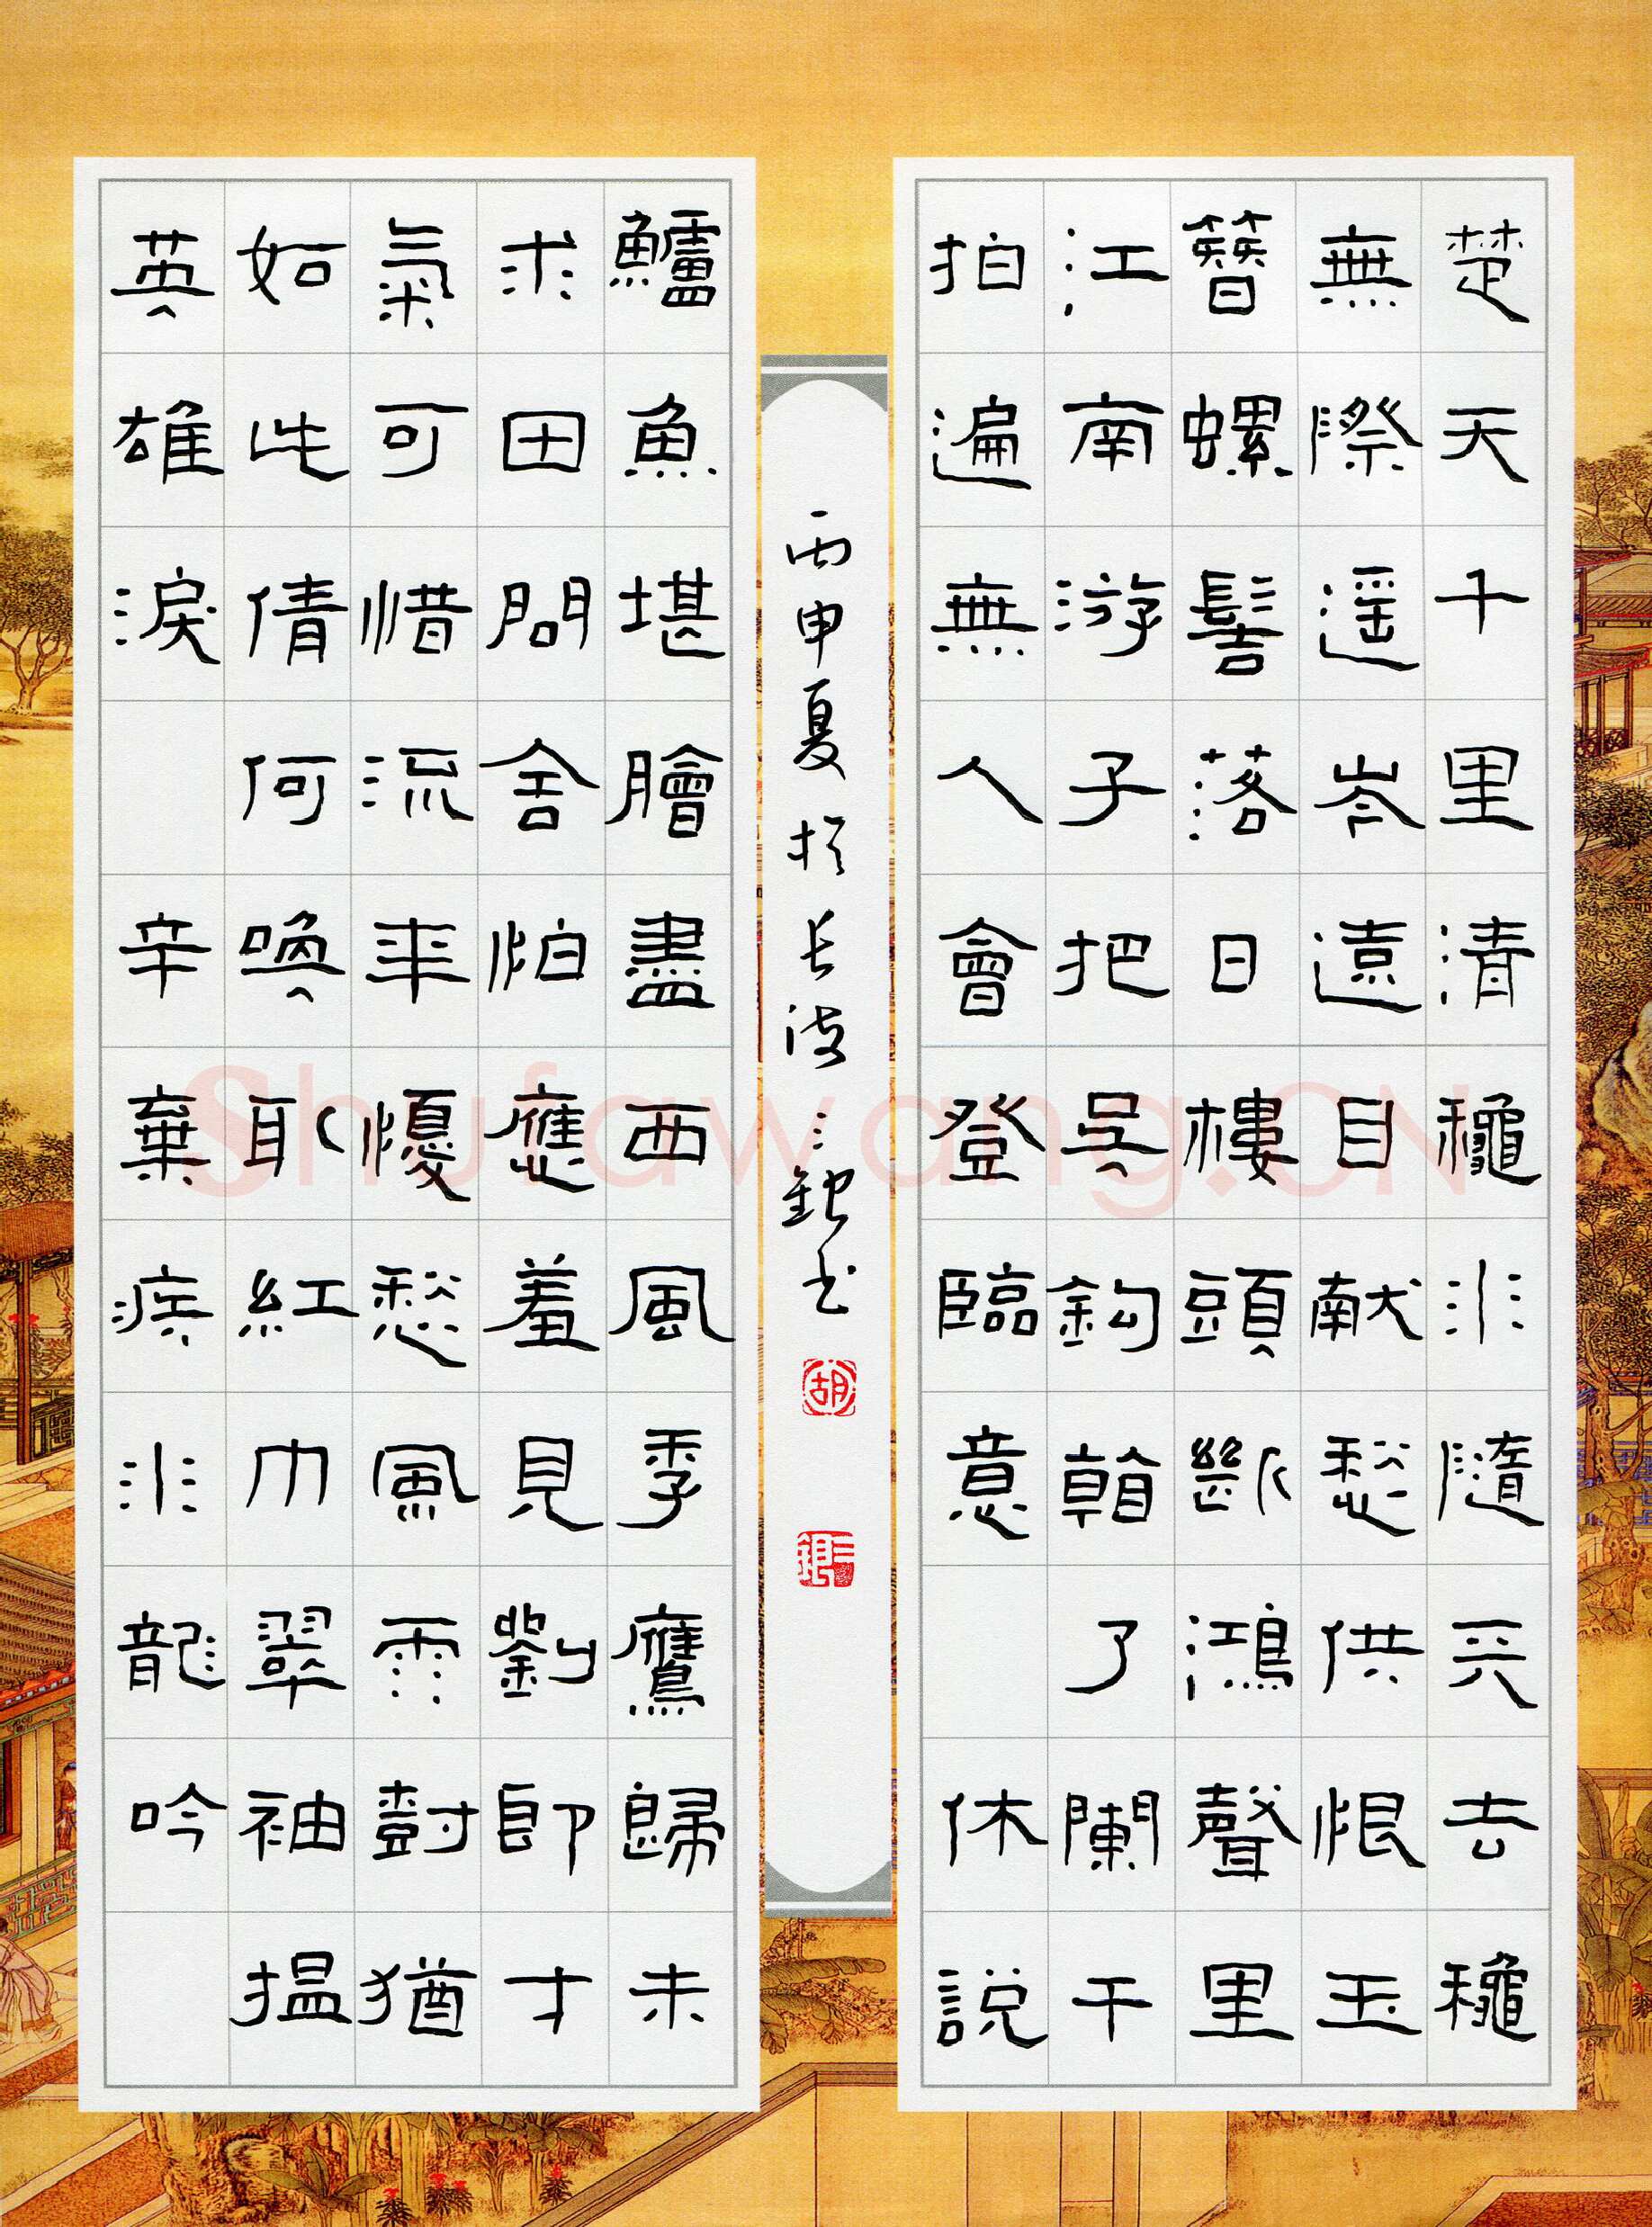 楚天千里清穐水隨天去穐
無際遥岑遠目献愁供恨玉
簪螺髻落日樓頭斷鴻聲里
江南游子把吴鈎看了闌干
拍遍無人會登臨意 休説
鱸魚堪膾盡西風季鷹歸未
求田問舍怕應羞見劉郎才
氣可惜流年懮愁風雨樹猶
如此倩何喚取紅巾翠袖揾
英雄淚 辛棄疾水龍吟
丙申夏於长三銀书
胡
三銀
Shufawang.CN